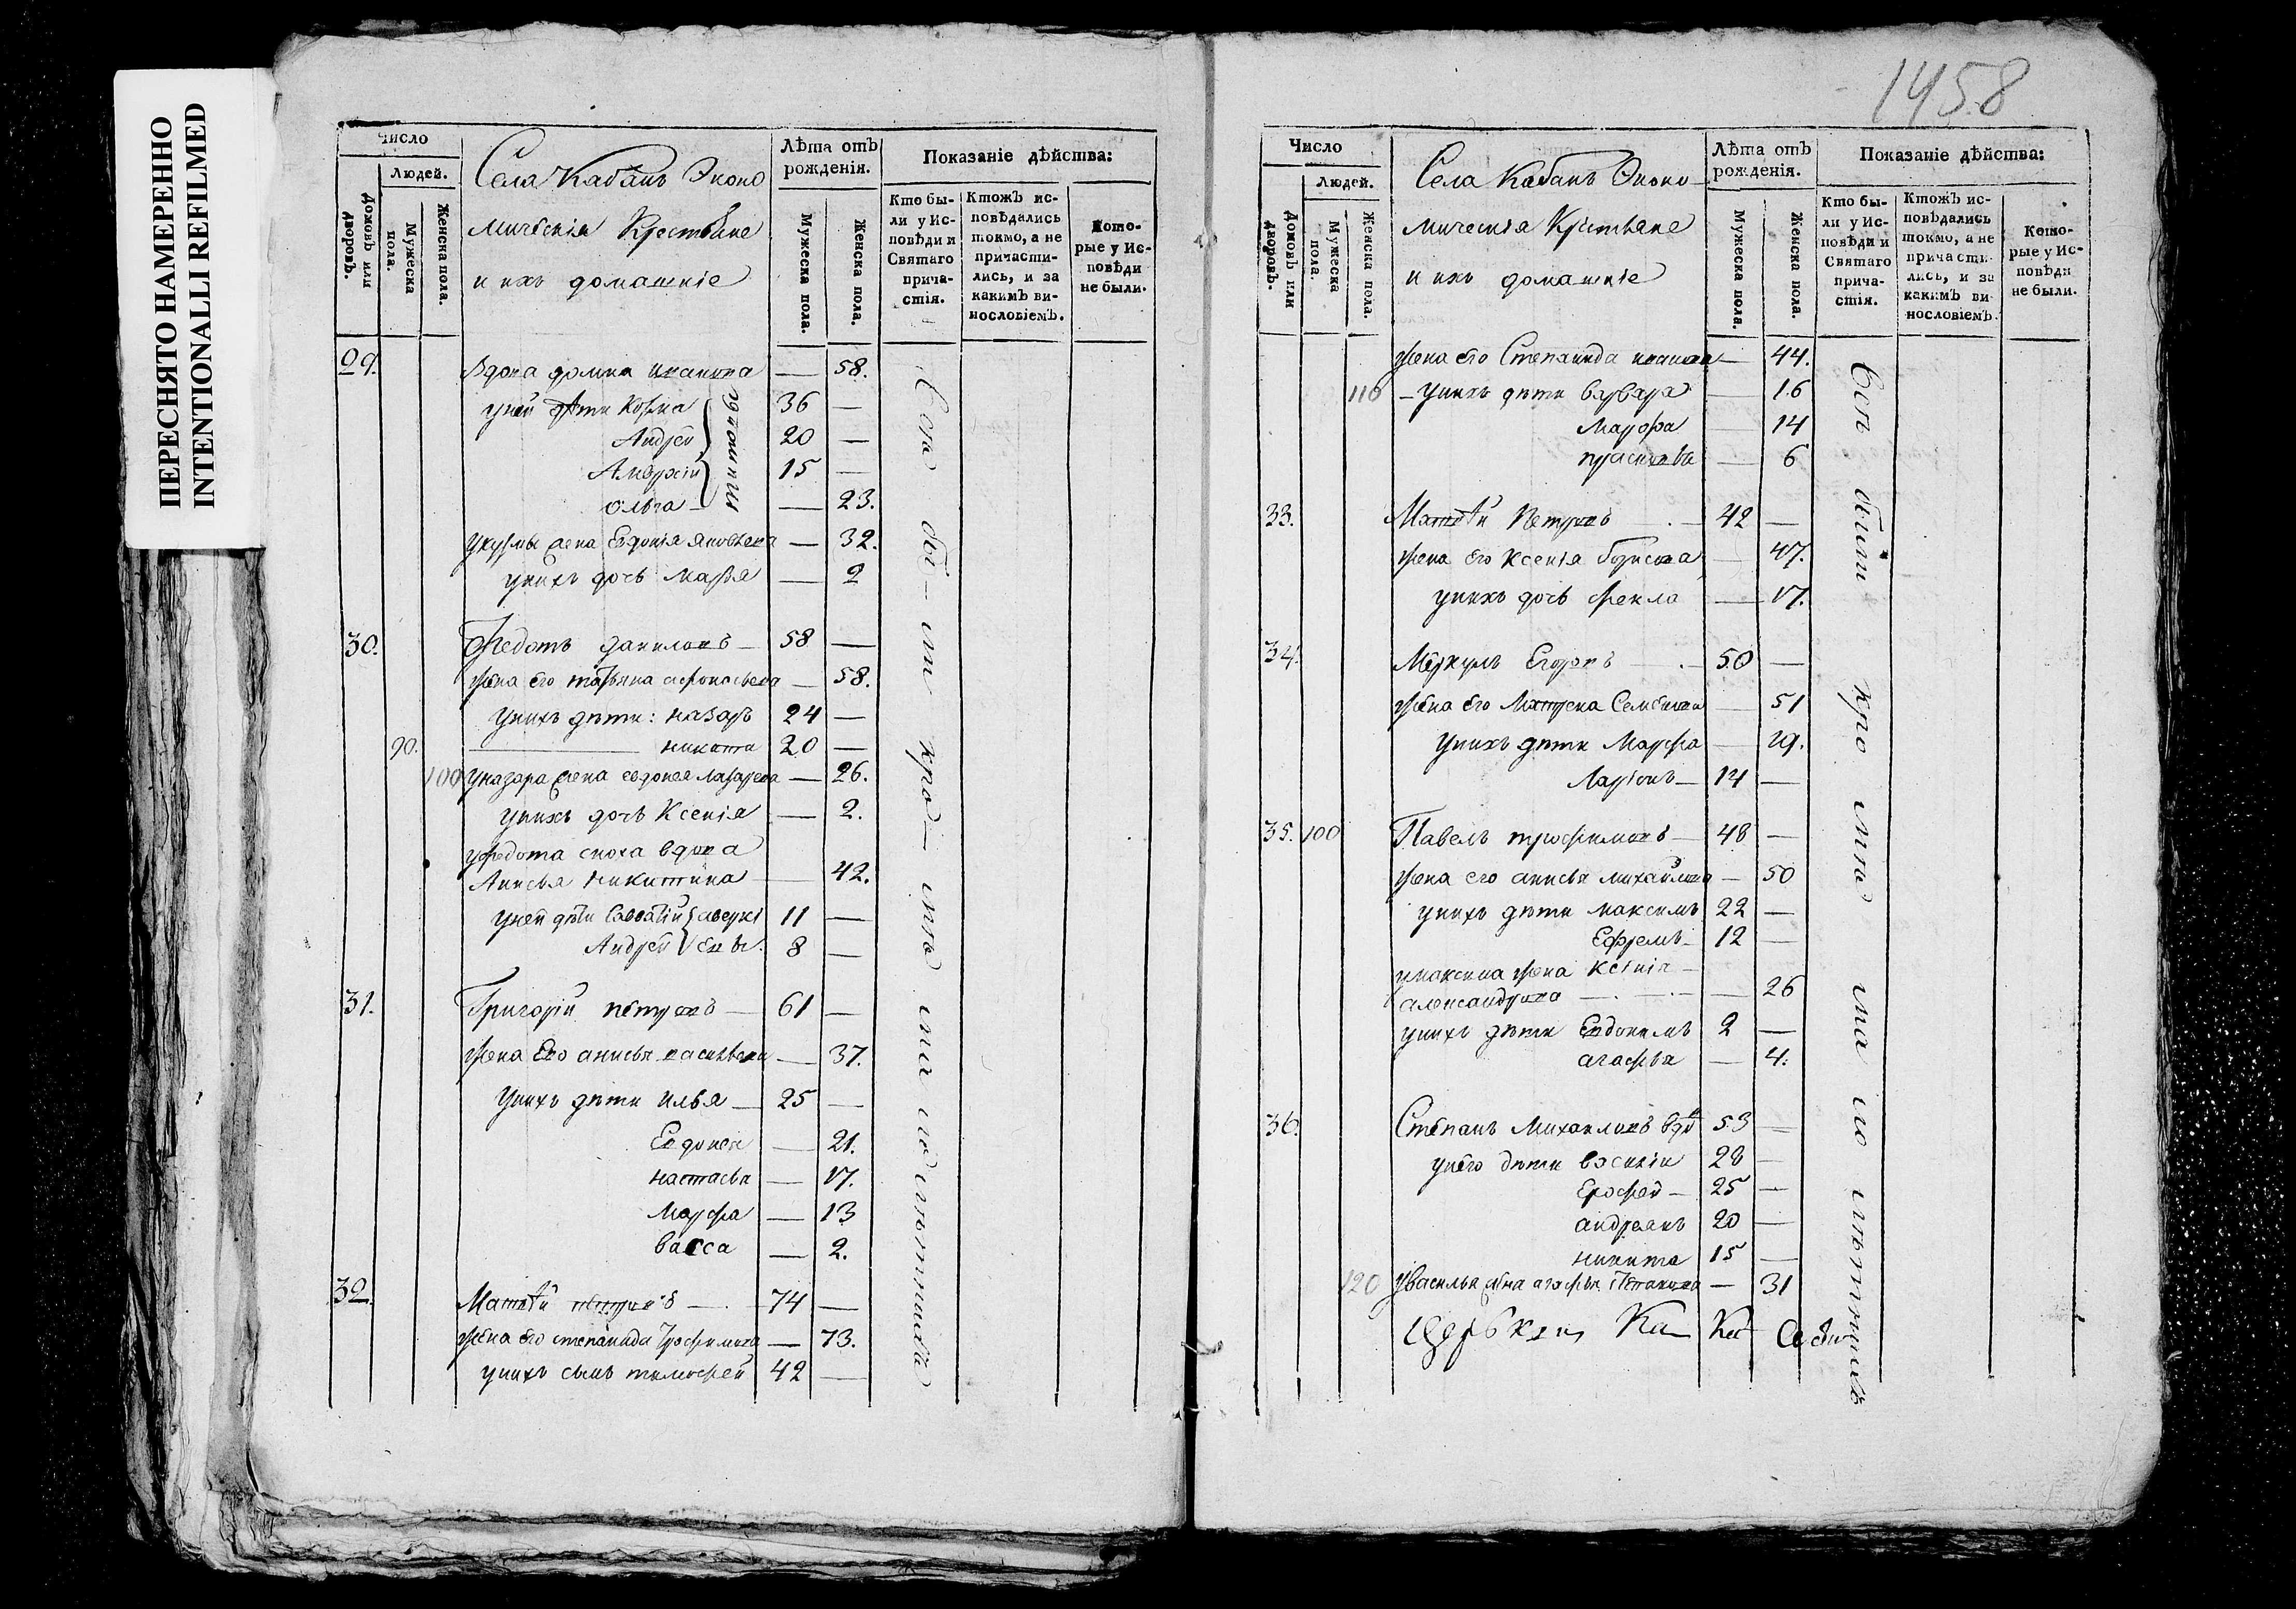 ПЕРЕСНЯТО НАМЕРЕННО
INTENTIONALLI REFILMED
Число
Людей.
Домовъ или дворовъ.
Мужеска пола.
Женска пола.
Села Кабанъ Эконо
мическія Крестьяне
и ихъ домашніе
Лѣта отъ рожденія.
Мужеска пола.
Женска пола.
Показаніе дѣйства:
Кто были у Исповѣди и Святаго причастія.
Ктожъ исповѣдались токмо, а не причастились, и за какимъ винословіемъ.
Которые у Исповѣди не были.
29. Вдова домна иванова — 58.
уней дѣти Козма 36 —
Андрей 20 —
15 —
Ольга — 23.
жена Евдокія — 32.
унихъ дочь Марья — 2
30. Федотъ даниловъ 58 —
жена его татьяна афонасьева — 58.
унихъ дѣти: назаръ 24 —
90. никита 20 —
100 уназара жена евдокея лазарева — 26.
унихъ дочь Ксенія — 2.
уфедота сноха вдова
Анисья никитина — 42.
уней дѣти Савватій 11 —
Андрей 8 —
31. Григорій петровъ 61 —
жена Его анисья васильева — 37.
унихъ дѣти илья 25 —
Евдокея — 21.
настасья — 17.
Марфа — 13
васса — 2.
32. Матвѣй петровъ 74 —
жена его степанида Трофимова — 73.
унихъ сынъ тимофей 42 —
1458
Число
Людей.
Домовъ или дворовъ.
Мужеска пола.
Женска пола.
Села Кабанъ Эконо
мическія Крестьяне
и ихъ домашніе
Лѣта отъ рожденія.
Мужеска пола.
Женска пола.
Показаніе дѣйства:
Кто были у Исповѣди и Святаго причастія.
Ктожъ исповѣдались токмо, а не причастились, и за какимъ винословіемъ.
Которые у Исповѣди не были.
жена его Степанида иванова — 44.
110 унихъ дѣти варвара — 16
Марфа — 14
прасковья — 6
33. Матвѣй Петровъ 42 —
жена его Ксенія борисова — 47.
унихъ дочь фекла — 17.
34. Меркулъ Егоровъ 50 —
жена его Матрена Семенова — 51
унихъ дѣти Марфа — 19.
Ларіонъ 14 —
35. 100 Павелъ трофимовъ 48 —
жена его анисья михайлова — 50
унихъ дѣти максимъ 22 —
Ефремъ 12 —
умаксима жена ксенія
александрова — 26
унихъ дѣти Евдокимъ 2 —
агафья — 4.
36. Степанъ Михайловъ вдв 53 —
унего дѣти василій 28 —
Ерофей 25 —
андреянъ 20 —
никита 15 —
120 увасилья жена агафья Степанова — 31